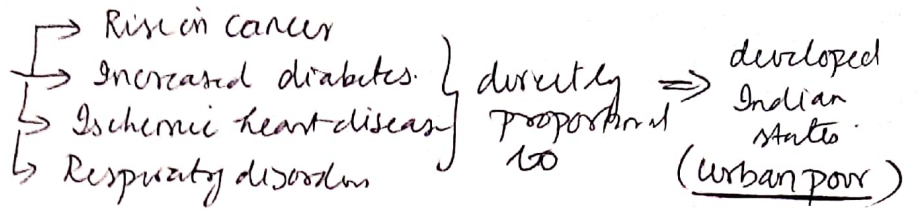 Rise in cancer
Increased diabetes.
Ischemic heart disease
Respiraty disorders
directly
proportional
to
developed
Indian
states.
(urban poor)